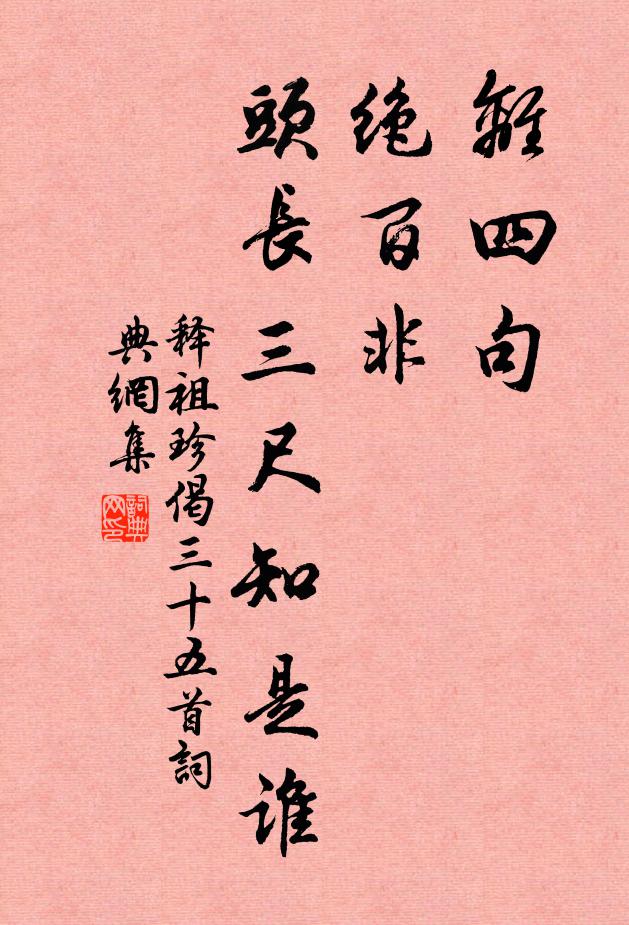 離四句
絶百非
頭長三尺知是誰
释祖珍偈三十五首詞
典網集
詞典
网印